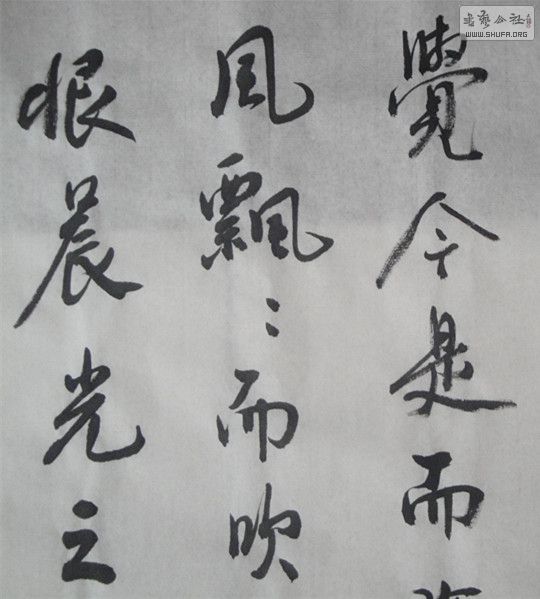 覺今是而
風飄〻而吹
恨晨光之
WWW.SHUFA.ORG